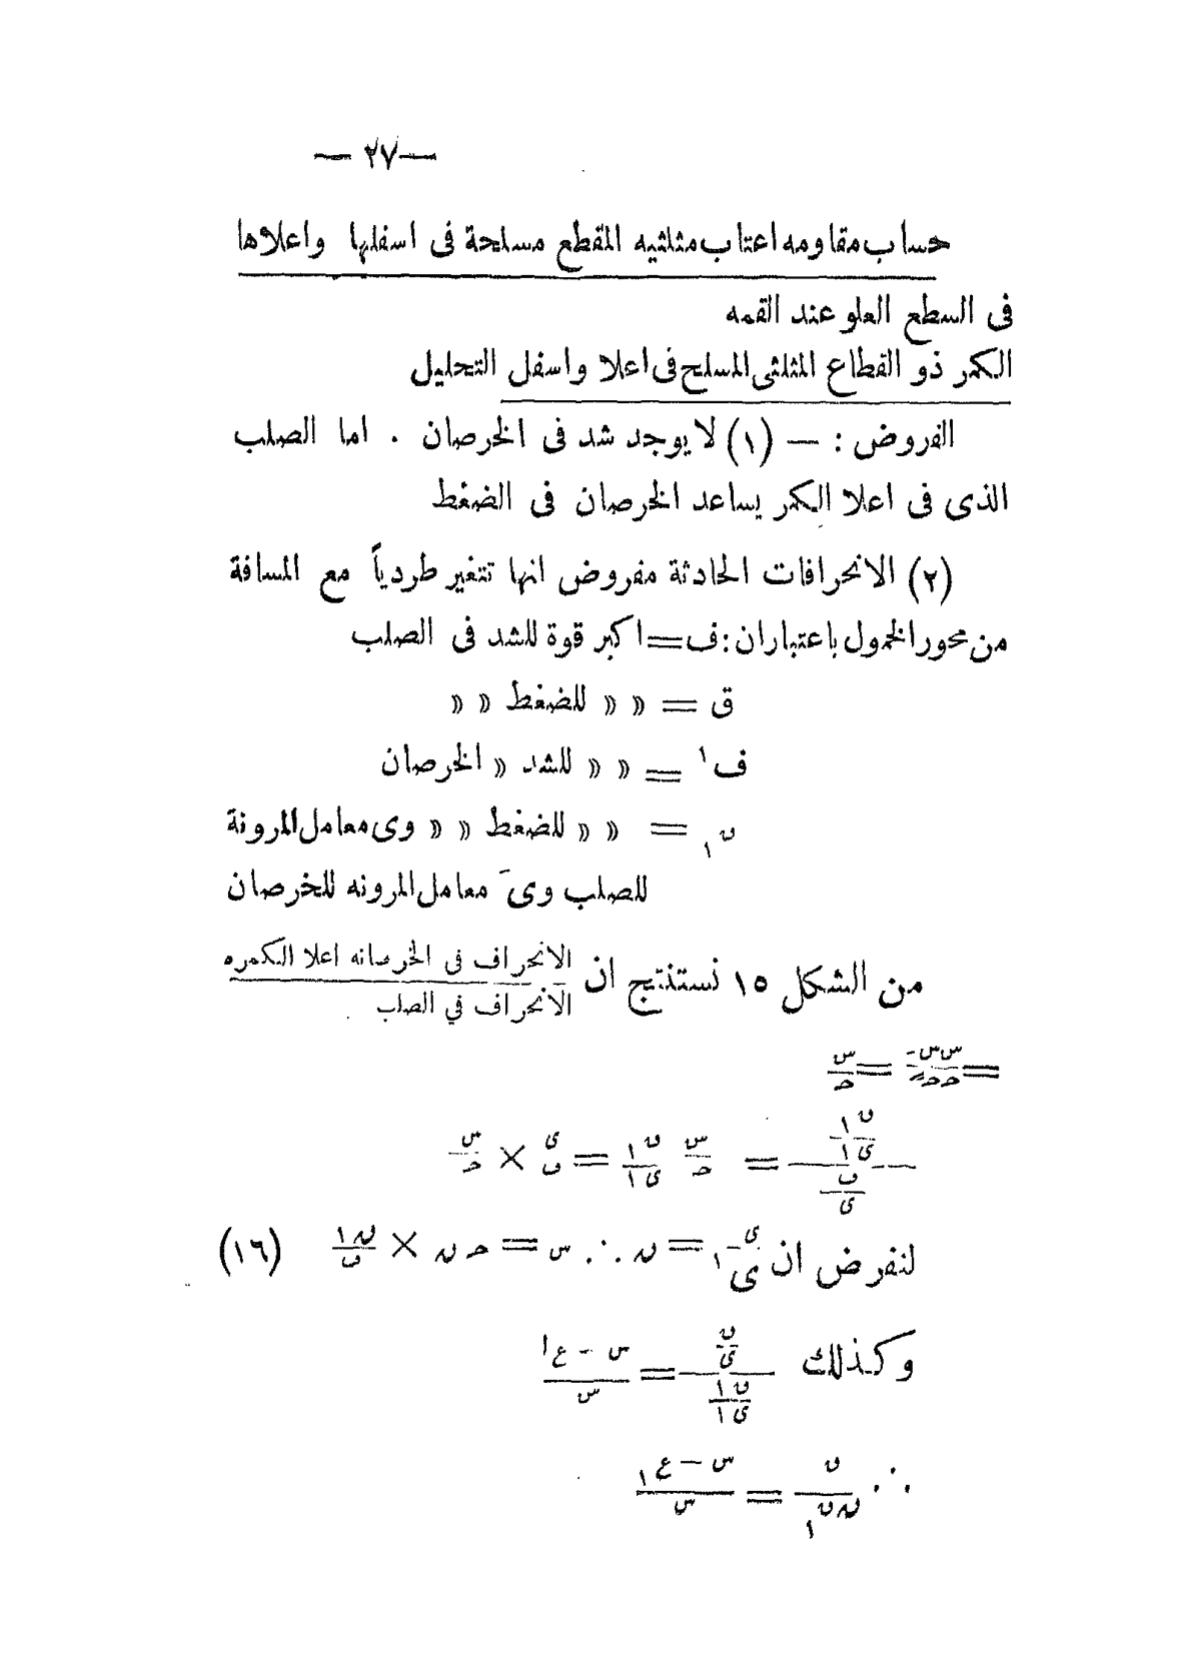 — ٢٧ —
حساب مقاومه اعتاب مثلثيه المقطع مسلحة فى اسفلها واعلاها
فى السطع العلو عند القمه
الكمر ذو القطاع المثلثى المسلح فى اعلا واسفل التحليل
الفروض : — (١) لا يوجد شد فى الخرصان . اما الصلب
الذى فى اعلا الكمر يساعد الخرصان فى الضغط
(٢) الانحرافات الحادثة مفروض انها تتغير طردياً مع المسافة
من محور الخمول باعتباران : ف = اكبر قوة للشد فى الصلب
ق = » » للضغط » »
ف١ = » » للشد » الخرصان
ں١ = » » للضغط » » وى معامل المرونة
للصلب وىَ معامل المرونه للخرصان
من الشكل ١٥ نستنتج ان الانحراف فى الخرصانه اعلا الكمره / الانحراف في الصلب
= س س- / حح- = س / ح
(ں١ / ى١) / (ف / ى) = س / ح ں١ / ى١ = ى / ف × س / ح
لنفرض ان ى / ى-١ = ں ∴ س = ح ں × ں١ / ف (١٦)
وكذلك (ں / ى) / (ں١ / ى١) = س - ع١ / س
∴ ں / ںں١ = س — ع١ / س